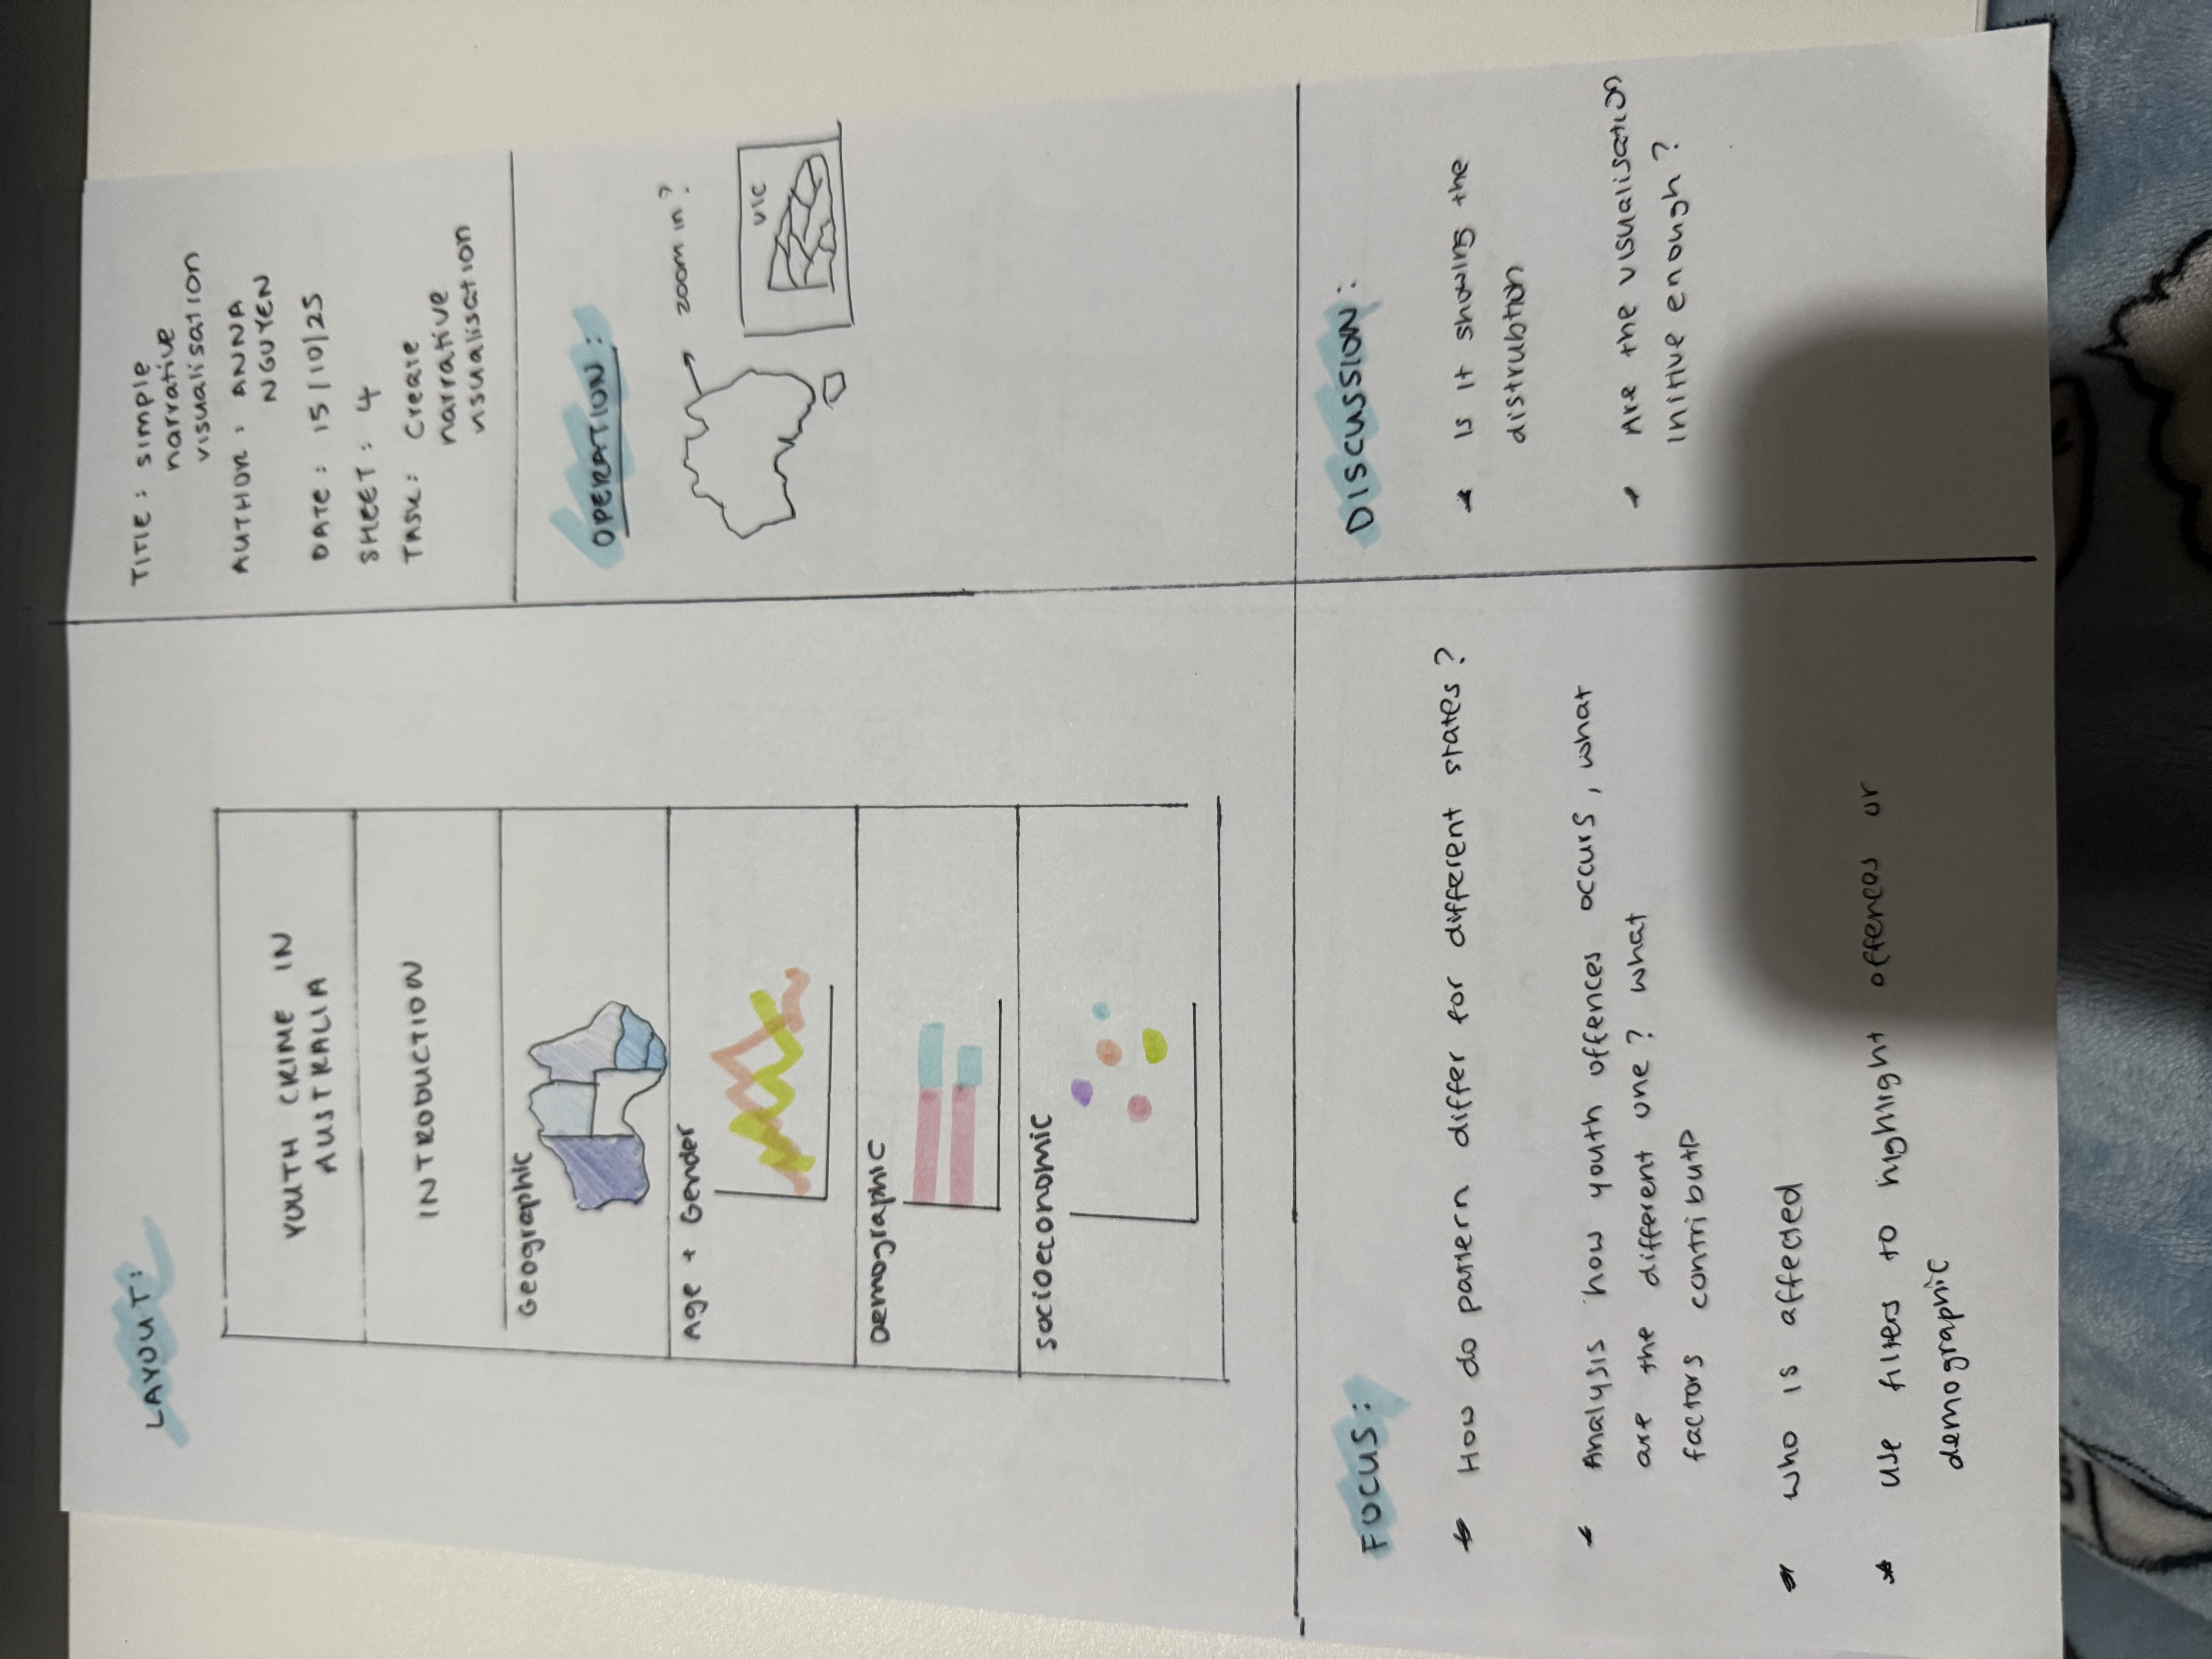 LAYOUT:
YOUTH CRIME IN
AUSTRALIA
INTRODUCTION
Geographic
Age + Gender
Demographic
socioeconomic
TITLE: simple
narrative
visualisation
AUTHOR: ANNA
NGUYEN
DATE: 15/10/25
SHEET: 4
TASK: Create
narrative
visualisation
OPERATION:
zoom in?
VIC
FOCUS:
How do pattern differ for different states?
Analysis how youth offences occurs, what
are the different one? What
factors contribute
who is affected
use filters to highlight offences or
demographic
DISCUSSION:
Is it showing the
distrubtion
Are the visualisation
initive enough?